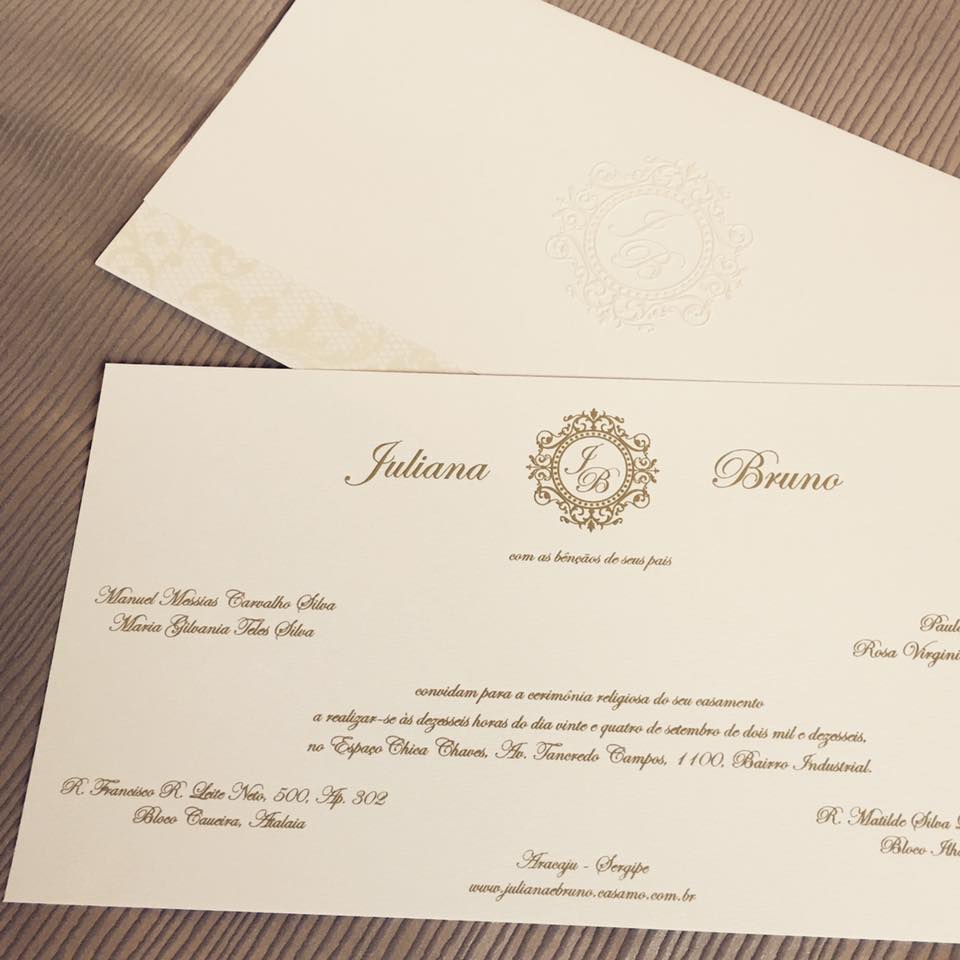 J
B
Juliana
J
B
Bruno
com as bênçãos de seus pais
Manuel Messias Carvalho Silva
Maria Gilvania Teles Silva
Rosa
convidam para a cerimônia religiosa do seu casamento
a realizar-se às dezesseis horas do dia vinte e quatro de setembro de dois mil e dezesseis,
no Espaço Chica Chaves, Av. Tancredo Campos, 1100, Bairro Industrial.
R. Francisco R. Leite Neto, 500, Ap. 302
Bloco Caueira, Atalaia
R. Matilde Silva
Bloco
Aracaju - Sergipe
www.julianaebruno.casamo.com.br